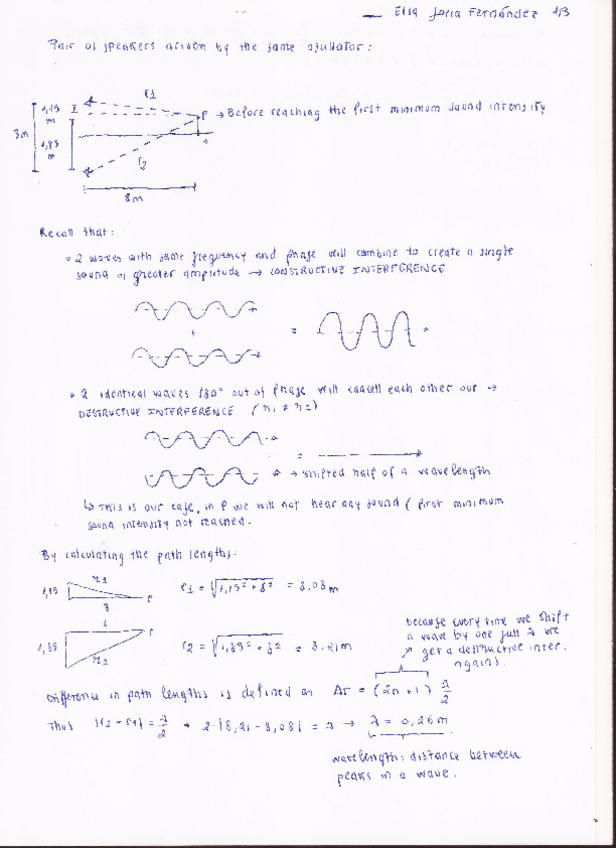 Elsa Joria Fernández 1/3
Pair of speakers driven by the same oscillator:
r1
1,15 m
P → Before reaching the first minimum sound intensity
3m
1,85 m
r2
8m
Recall that:
2 waves with same frequency and phase will combine to create a single
sound of greater amplitude → CONSTRUCTIVE INTERFERENCE
+
=
2 identical waves 180° out of phase will cancell each other out →
DESTRUCTIVE INTERFERENCE (r1 ≠ r2)
=
→ shifted half of a wavelength
↳ This is our case, in P we will not hear any sound (first minimum
sound intensity not reached.
By calculating the path lengths:
1,15
8
P
r1 = √1,15² + 8² = 8,08m
P
1,85
r2 = √1,85² + 8² = 8.21m
because every time we shift
a wave by one full λ we
get a destructive inter.
again).
Difference in path lengths is defined as Δr = (2n+1) λ/2
Thus |r2 - r1| = λ/2 → 2·|8,21 - 8,08| = λ → λ = 0,26m
wavelength: distance between
peaks in a wave.